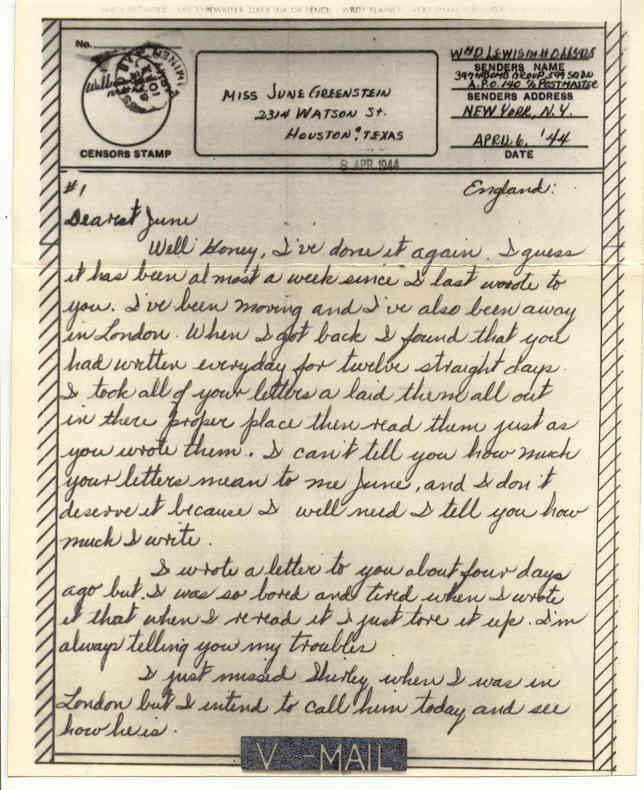 No.
CENSORS STAMP
MISS JUNE GREENSTEIN
2314 WATSON St.
HOUSTON, TEXAS
8 APR 1944
SENDERS NAME
397 BOMB GROUP, 599 SQDN
A.P.O. 140 % POSTMASTER
SENDERS ADDRESS
NEW YORK, N.Y.
APRIL 6, '44
DATE
#1
England:
Dearest June
Well Honey, I've done it again. I guess
it has been almost a week since I last wrote to
you. I've been moving and I've also been away
in London. When I got back I found that you
had written everyday for twelve straight days.
I took all of your letters a laid them all out
in there proper place then read them just as
you wrote them. I can't tell you how much
your letters mean to me June, and I don't
deserve it because I well need I tell you how
much I write.
I wrote a letter to you about four days
ago but I was so bored and tired when I wrote
it that when I reread it I just tore it up. I'm
always telling you my troubles
I just missed Shirley when I was in
London but I intend to call him today and see
how he is.
V-MAIL